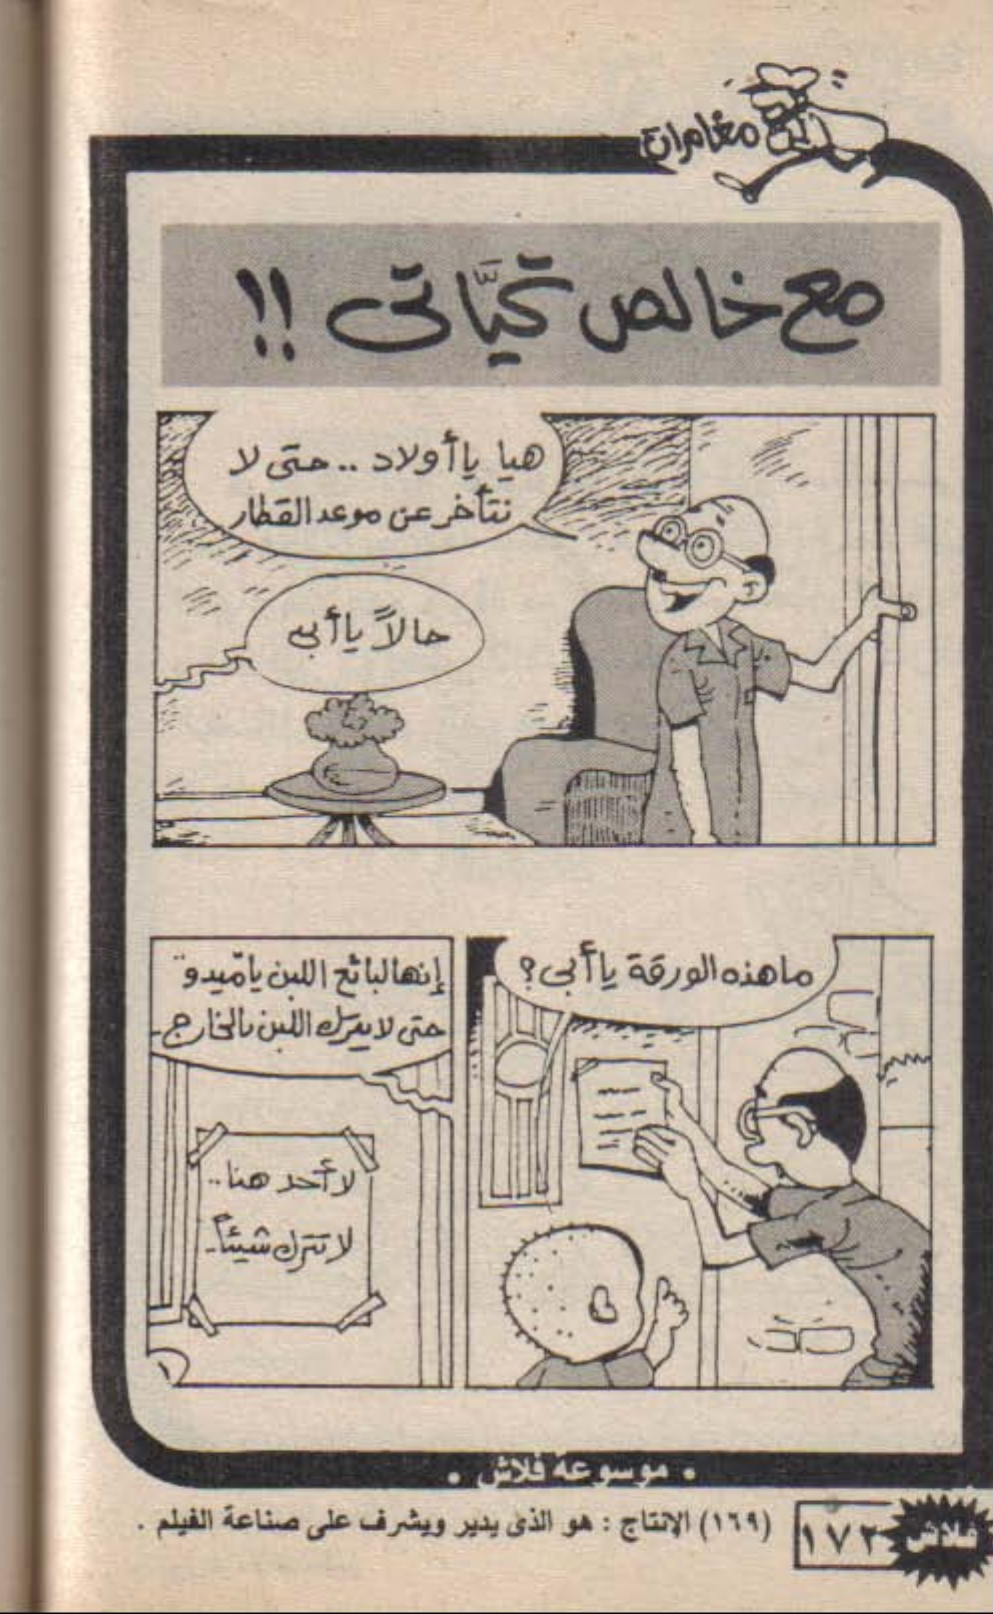 مغامرات
مع خالص تحيَّاتى !!
هيا يا أولاد .. حتى لا
نتأخر عن موعد القطار
حالاً يا أبى
ما هذه الورقة يا أبى ؟
إنها لبائع اللبن يا ميدو
حتى لا يترك اللبن بالخارج
لا أحد هنا ..
لا تترك شيئاً ..
١
• موسوعة فلاش •
(١٦٩) الإنتاج : هو الذى يدير ويشرف على صناعة الفيلم .
فلاش